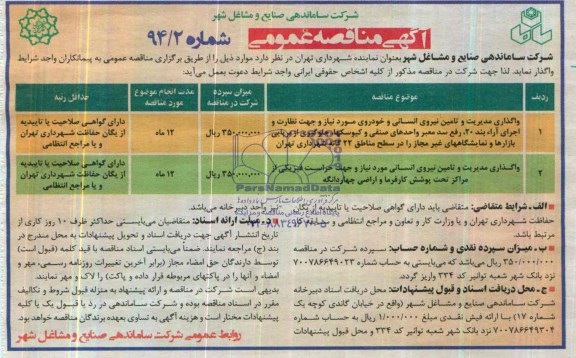 شرکت ساماندهی صنایع و مشاغل شهر
آگهی مناقصه عمومی شماره ۹۴/۲
شرکت ساماندهی صنایع و مشاغل شهر بعنوان نماینده شهرداری تهران در نظر دارد موارد ذیل را از طریق برگزاری مناقصه عمومی به پیمانکاران واجد شرایط
واگذار نماید. لذا جهت شرکت در مناقصه مذکور از کلیه اشخاص حقوقی ایرانی واجد شرایط دعوت بعمل می‌آید.
ردیف موضوع مناقصه میزان سپرده شرکت در مناقصه مدت انجام موضوع مورد مناقصه حداقل رتبه
۱ واگذاری مدیریت و تامین نیروی انسانی و خودروی مورد نیاز و جهت نظارت و
اجرای آراء بند ۲۰، رفع سد معبر واحدهای صنفی و کیوسکها، جلوگیری از برپایی
بازارها و نمایشگاههای غیر مجاز را در سطح مناطق ۲۲ گانه شهرداری تهران
۳۵۰،۰۰۰،۰۰۰ ریال
۱۲ ماه
دارای گواهی صلاحیت یا تاییدیه
از یگان حفاظت شهرداری تهران
و یا مراجع انتظامی
۲ واگذاری مدیریت و تامین نیروی انسانی مورد نیاز و جهت حراست فیزیکی از
مراکز تحت پوشش کارفرما و اراضی چهاردانگه
۳۵۰،۰۰۰،۰۰۰ ریال
۱۲ ماه
دارای گواهی صلاحیت یا تاییدیه
از یگان حفاظت شهرداری تهران
و یا مراجع انتظامی
ParsNamadData
الف ـ شرایط متقاضی: متقاضی باید دارای گواهی صلاحیت یا تاییدیه از یگان
حفاظت شهرداری تهران و یا وزارت کار و تعاون و مراجع انتظامی و
مرتبط باشد.
ب ـ میزان سپرده نقدی و شماره حساب: سپرده شرکت در مناقصه
۳۵۰/۰۰۰/۰۰۰ ریال می‌باشد که می‌بایستی به حساب شماره ۷۰۰۷۸۶۶۴۹۰۲۳
نزد بانک شهر شعبه توانیر کد ۳۳۴ واریز گردد.
ج ـ محل دریافت اسناد و قبول پیشنهادات: محل دریافت اسناد دبیرخانه
شرکت ساماندهی صنایع و مشاغل شهر (واقع در خیابان گاندی کوچه یک
شماره ۱۷) با ارائه فیش نقدی مبلغ ۱/۰۰۰/۰۰۰ ریال به حساب شماره
۷۰۰۷۸۶۶۴۹۳۰۴ نزد بانک شهر شعبه توانیر کد ۳۳۴ و محل قبول پیشنهادات
نیز واحد دبیرخانه می‌باشد.
د ـ مهلت ارائه اسناد: متقاضیان می‌بایستی حداکثر ظرف ۱۰ روز کاری از
تاریخ انتشار آگهی جهت دریافت اسناد و تحویل پیشنهادات به محل مندرج در
بند (ج) مراجعه نمایند. ضمناً می‌بایستی اسناد مناقصه با قید کلمه (قبول است)
توسط دارندگان حق امضاء مجاز (برابر آخرین تغییرات روزنامه رسمی، مهر و
امضاء و آنها را در پاکتهای مربوطه قرار داده و پاکت) را لاک و مهر نمایند.
بدیهی است شرکت در مناقصه و ارائه پیشنهاد به منزله قبول شروط و تکالیف
مقرر در اسناد مناقصه بوده و شرکت ساماندهی در رد یا قبول یک یا کلیه
پیشنهادات مختار است و هزینه آگهی به تساوی بعهده برندگان مناقصه خواهد بود.
روابط عمومی شرکت ساماندهی صنایع و مشاغل شهر